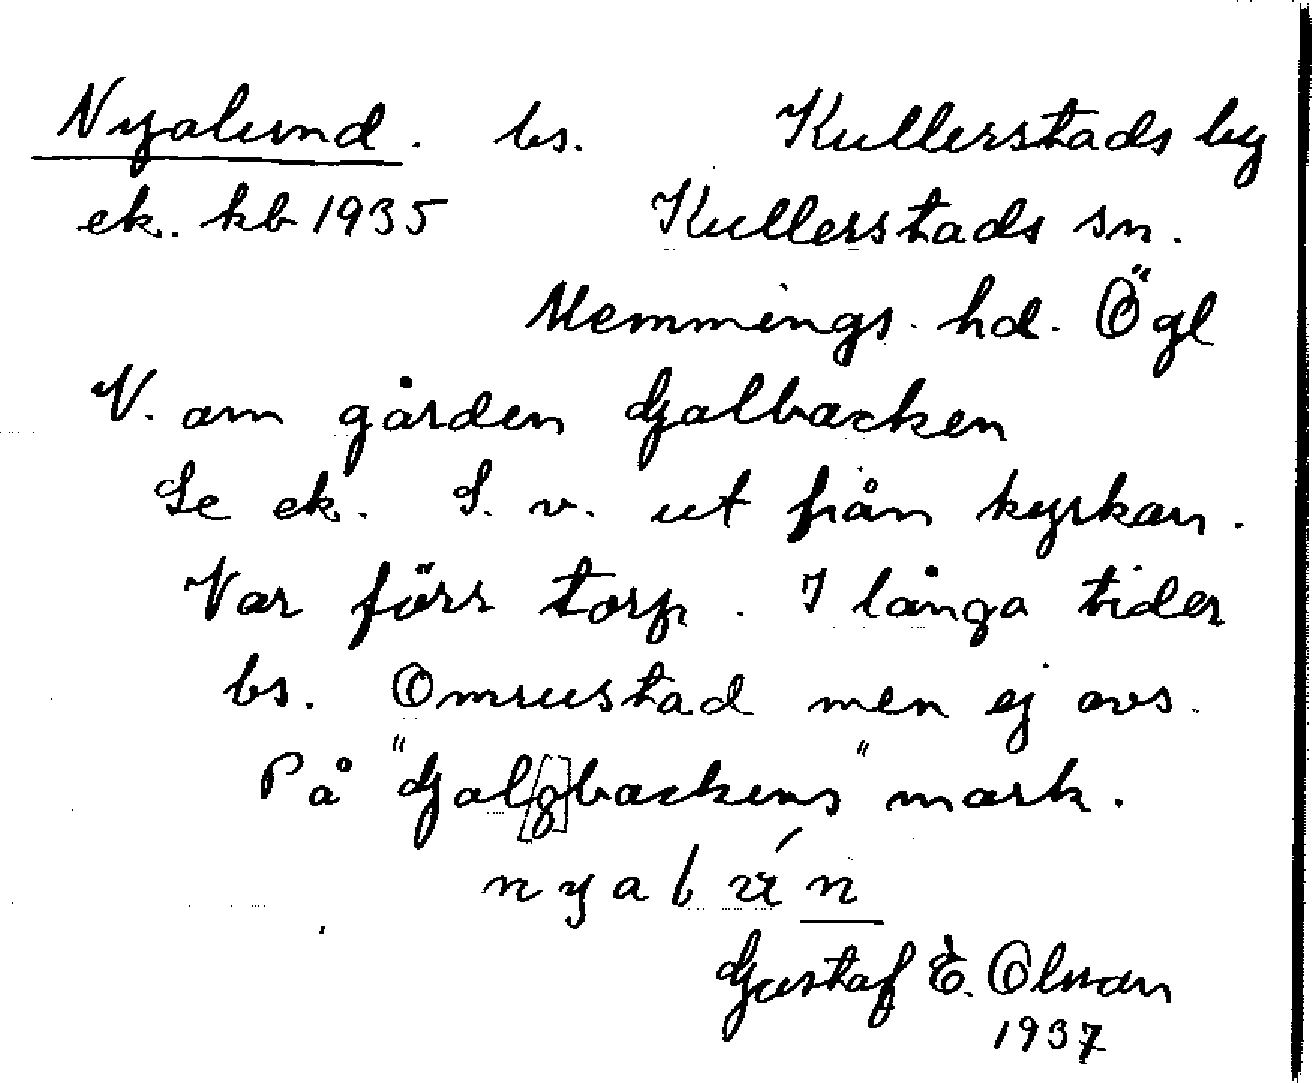 Nyalund. bs. Kullerstads by
ek. kb 1935 Kullerstads sn.
Memmings. hd. Ögl
V. om gården Galbacken
Se ek. S. v. ut från kyrkan.
Var förr torp. I långa tider
bs. Omrustad men ej avs.
På "Gal[g]backens" mark.
nyal n
Gustaf E. Olman
1937